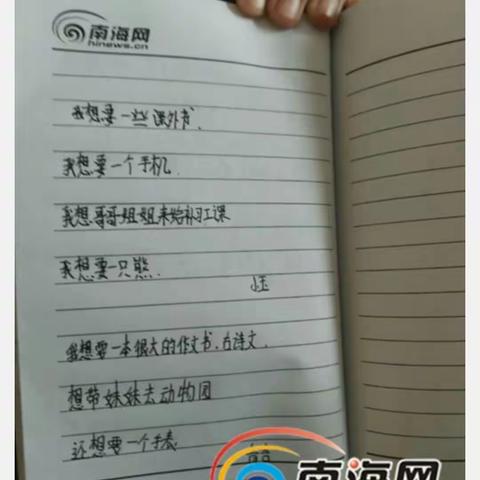 南海网
hinews.cn
我想要一些课外书、
我想要一个手机.
我想哥哥姐姐来给补习工课
我想要一只熊.
我想要一本很大的作文书、古诗文.
想带妹妹去动物园
还想要一个手表
南海网